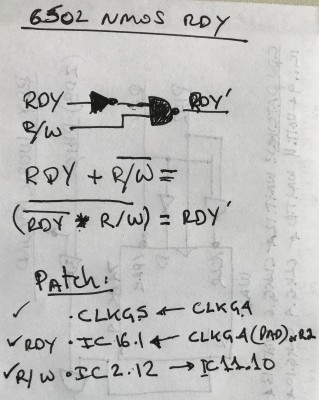 6502 NMOS RDY
RDY RDY'
R/W
RDY + R/W =
(RDY * R/W) = RDY'
Patch:
✓ · CLKG5 ← CLKG4
✓ RDY · IC16.1 ← CLKG4 (PAD) or R2
✓ R/W · IC2.12 → IC11.10